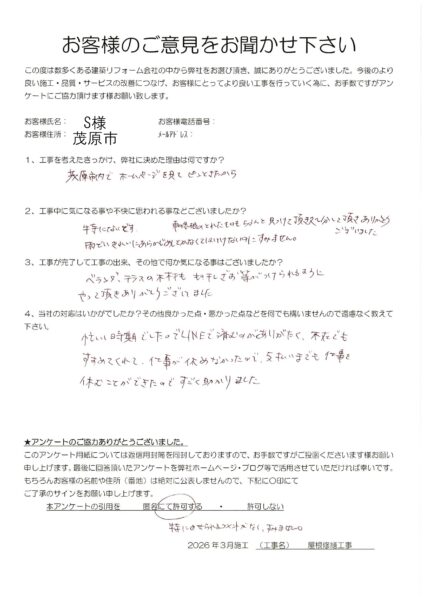 お客様のご意見をお聞かせ下さい
この度は数多くある建築リフォーム会社の中から弊社をお選び頂き、誠にありがとうございました。今後のより
良い施工・品質・サービスの改善につなげ、お客様にとってより良い工事を行っていく為に、お手数ですがアン
ケートにご協力頂けます様お願い致します。
お客様氏名： S様 お客様電話番号：
お客様住所： 茂原市 メールアドレス：
1、工事を考えたきっかけ、弊社に決めた理由は何ですか？
茂原市内で ホームページを見て ピンときたから
2、工事中に気になる事や不快に思われる事などございましたか？
特にないです。
ございました
すみません。
3、工事が完了して工事の出来、その他で何か気になる事はございましたか？
ベランダ、テラスの木材も 物干しざお等がつけられるように
やって頂きありがとうございました
4、当社の対応はいかがでしたか？その他良かった点・悪かった点などを何でも構いませんので遠慮なく教えて
下さい。
忙しい時期でしたのでLINEで済むのがありがたく、不在でも
すすめてくれて、仕事が休めなかったので、支払いまでも 仕事を
休むことができたので すごく助かりました
★アンケートのご協力ありがとうございました。
このアンケート用紙については返信用封筒を同封しておりますので、お手数ですがご投函くださいます様お願い
申し上げます。最後に回答頂いたアンケートを弊社ホームページ・ブログ等で活用させていただければ幸いです。
もちろんお客様の名前や住所（番地）は絶対に公表しませんので、下記に○印にて
ご了承のサインをお願い申し上げます。
本アンケートの引用を 匿名にて許可する ・ 許可しない
特にのせられるコメントがなく、すみません。
2026年3月施工 （工事名） 屋根修繕工事